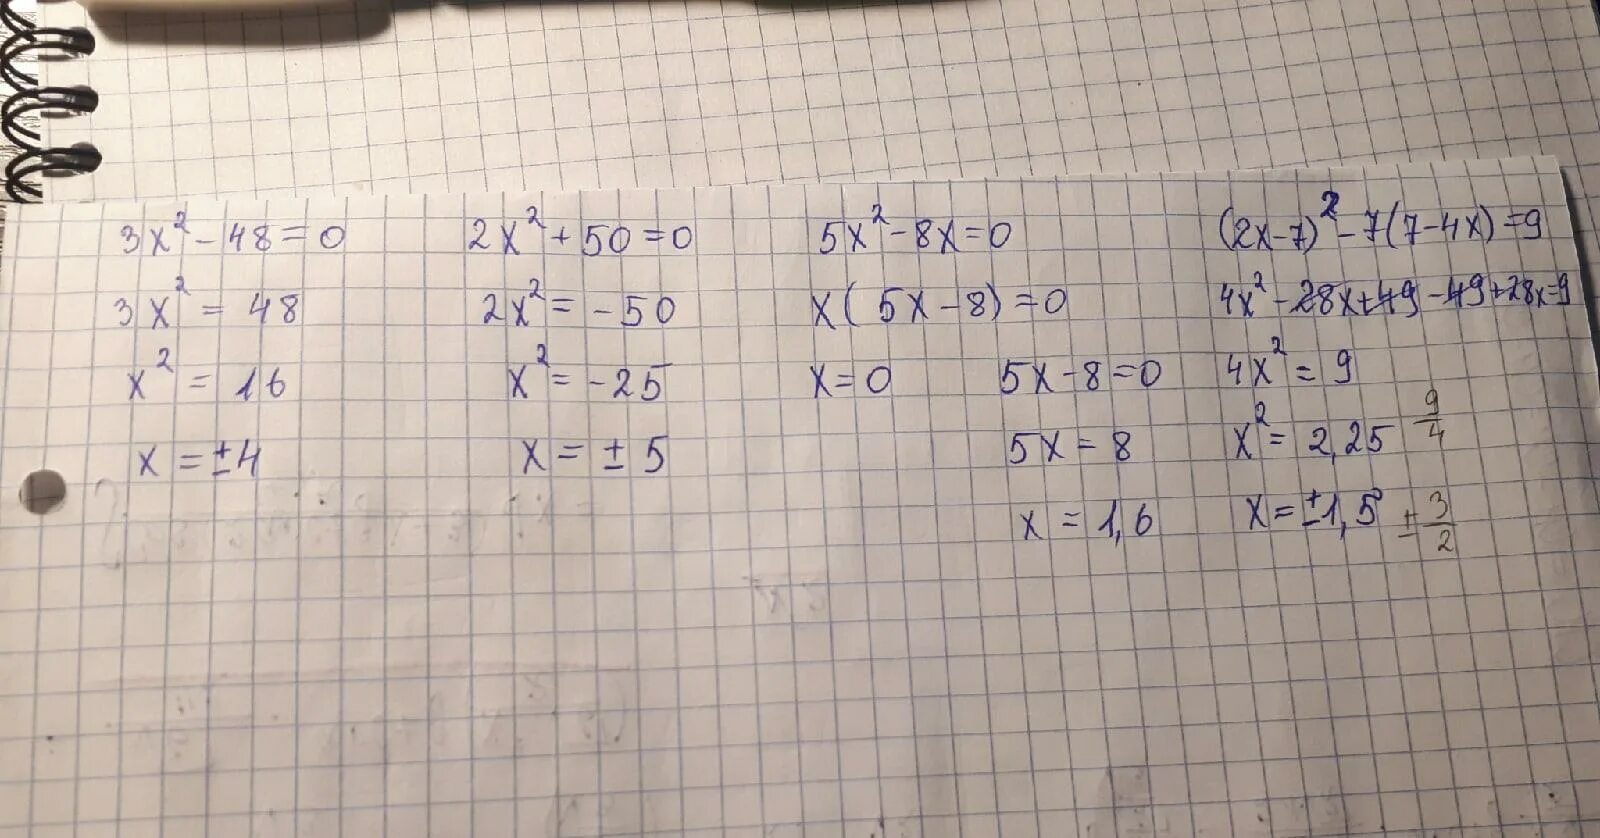 3x² - 48 = 0
3x² = 48
x² = 16
x = ±4
2x² + 50 = 0
2x² = -50
x² = -25
x = ± 5
5x² - 8x = 0
x( 5x - 8) = 0
x = 0
5x - 8 = 0
5x = 8
x = 1,6
(2x-7)² - 7(7-4x) = 9
4x² - 28x + 49 - 49 + 28x = 9
4x² = 9
x² = 2,25 9/4
x = ±1,5 ± 3/2